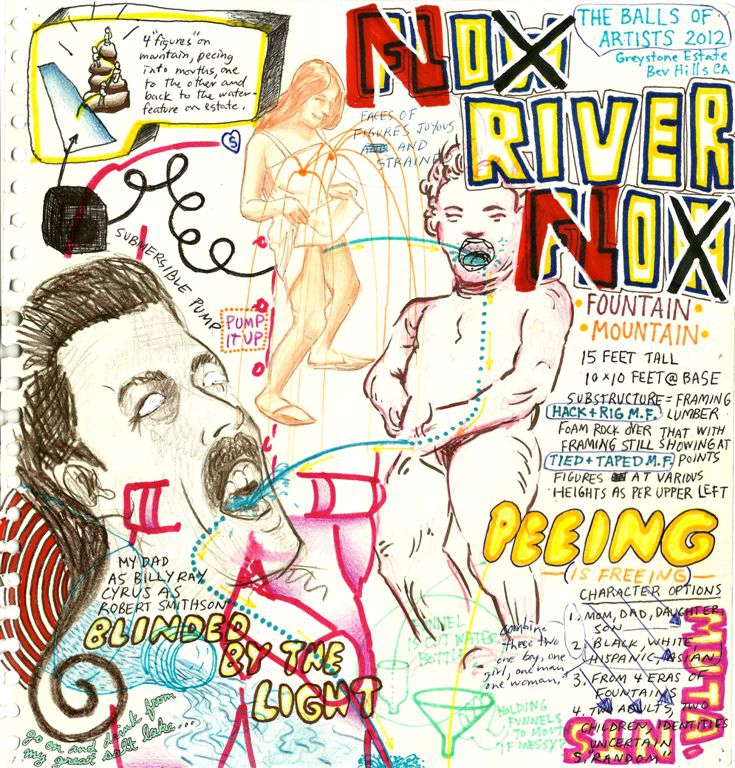 4 "figures" on
mountain, peeing
into mouths, one
to the other and
back to the water-
feature on estate.
NOX
RIVER
NOX
THE BALLS OF
ARTISTS 2012
Greystone Estate
Bev Hills CA
FACES OF
FIGURES JOYOUS
AND
STRAINED
S
SUBMERSIBLE PUMP
PUMP
IT UP
• FOUNTAIN
• MOUNTAIN •
15 FEET TALL
10×10 FEET @ BASE
SUBSTRUCTURE = FRAMING
HACK + RIG M.F. LUMBER
FOAM ROCK OVER THAT WITH
FRAMING STILL SHOWING AT
TIED + TAPED M.F. POINTS
FIGURES AT VARIOUS
HEIGHTS AS PER UPPER LEFT
PEEING
— IS FREEING —
CHARACTER OPTIONS
1. MOM, DAD, DAUGHTER
SON
2. BLACK, WHITE,
HISPANIC, ASIAN
3. FROM 4 ERAS OF
FOUNTAINS
4. TWO ADULTS, TWO
CHILDREN, IDENTITIES
UNCERTAIN
5. "RANDOM"
Combine
these two
one boy, one
girl, one man,
one woman,
MY DAD
AS BILLY RAY
CYRUS AS
ROBERT SMITHSON
BLINDED
BY THE
LIGHT
FUNNEL
IS CUT WATER
BOTTLE
HOLDING
FUNNELS
TO MOUTH
IF MESSY?
go on and drink from
my great salt lake...